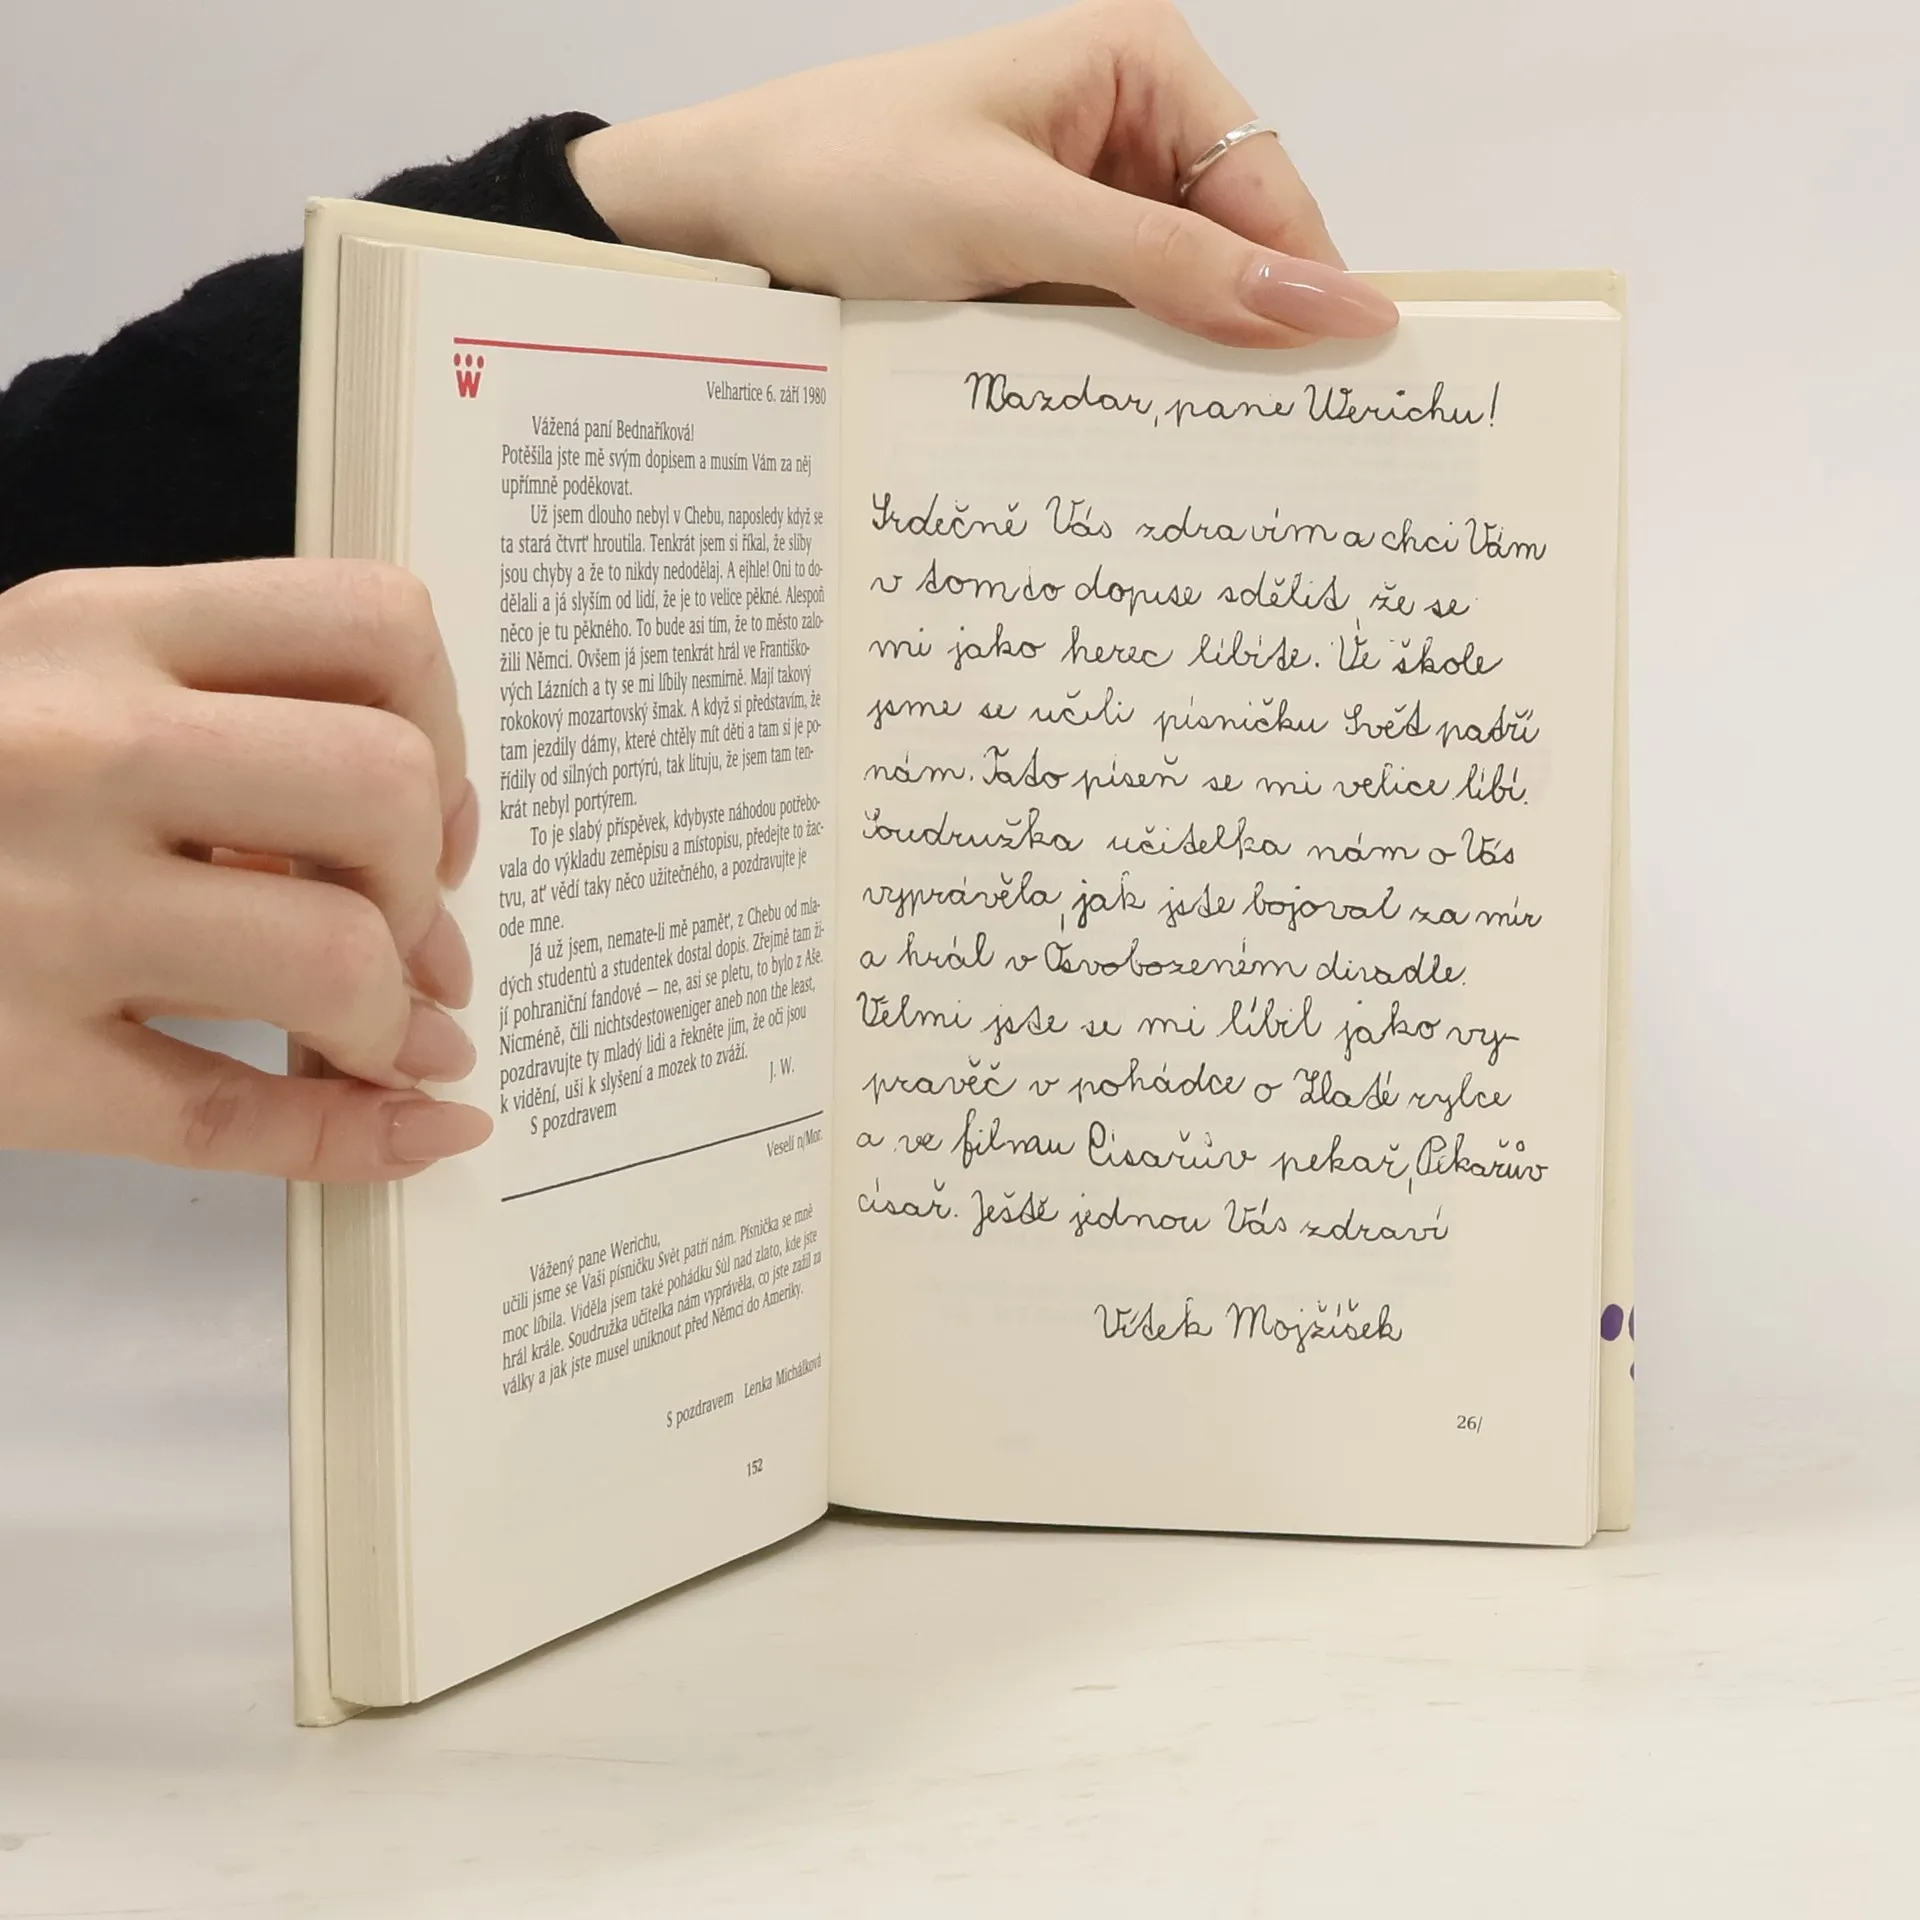 W
Velhartice 6. září 1980
Vážená paní Bednaříková!
Potěšila jste mě svým dopisem a musím Vám za něj
upřímně poděkovat.
Už jsem dlouho nebyl v Chebu, naposledy když se
ta stará čtvrť hroutila. Tenkrát jsem si říkal, že sliby
jsou chyby a že to nikdy nedodělaj. A ejhle! Oni to do-
dělali a já slyším od lidí, že je to velice pěkné. Alespoň
něco je tu pěkného. To bude asi tím, že to město zalo-
žili Němci. Ovšem já jsem tenkrát hrál ve Františko-
vých Lázních a ty se mi líbily nesmírně. Mají takový
rokokový mozartovský šmak. A když si představím, že
tam jezdily dámy, které chtěly mít děti a tam si je po-
řídily od silných portýrů, tak lituju, že jsem tam ten-
krát nebyl portýrem.
To je slabý příspěvek, kdybyste náhodou potřebo-
vala do výkladu zeměpisu a místopisu, předejte to žac-
tvu, ať vědí taky něco užitečného, a pozdravujte je
ode mne.
Já už jsem, nemate-li mě paměť, z Chebu od mla-
dých studentů a studentek dostal dopis. Zřejmě tam ži-
jí pohraniční fandové — ne, asi se pletu, to bylo z Aše.
Nicméně, čili nichtsdestoweniger aneb non the least,
pozdravujte ty mladý lidi a řekněte jim, že oči jsou
k vidění, uši k slyšení a mozek to zváží.
J. W.
S pozdravem
Veselí n/Mor.
Vážený pane Werichu,
učili jsme se Vaši písničku Svět patří nám. Písnička se mně
moc líbila. Viděla jsem také pohádku Sůl nad zlato, kde jste
hrál krále. Soudružka učitelka nám vyprávěla, co jste zažil za
války a jak jste musel uniknout před Němci do Ameriky.
S pozdravem Lenka Michálková
152
Nazdar, pane Werichu!
Srdečně Vás zdravím a chci Vám
v tomto dopise sdělit, že se
mi jako herec líbíte. Ve škole
jsme se učili písničku Svět patří
nám. Tato píseň se mi velice líbí.
Soudružka učitelka nám o Vás
vyprávěla, jak jste bojoval za mír
a hrál v Osvobozeném divadle.
Velmi jste se mi líbil jako vy-
pravěč v pohádce o Zlaté rylce
a ve filmu Císařův pekař, Pekařův
císař. Ještě jednou Vás zdraví
Vítek Mojžíšek
26/